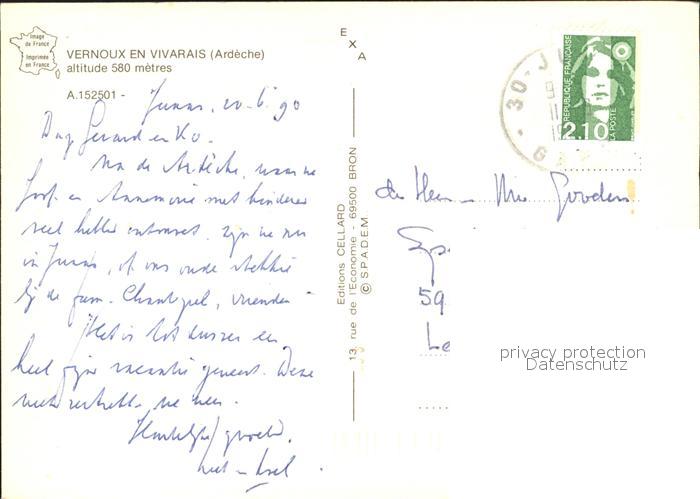 Image
de France
Imprimée
en France
VERNOUX EN VIVARAIS (Ardèche)
altitude 580 mètres
A.152501 -
Junas, 20-6-90
Dag Gerard en Ko.
Na de Ardèche, waar we
en Annemarie met kinderen
veel hebben ontmoet, zijn we nu
in Junas, op ons oude stekkie
bij de fam. vrienden
Het is tot dusver een
heel fijne vacantie geweest. Deze
week vertrekken we weer.
Hartelijke groeten,
EXA
Editions CELLARD
13, rue de l'Economie - 69500 BRON
© SPADEM
30-JU
GARD
REPUBLIQUE FRANÇAISE
2,10
LA POSTE
de Heer - Mw Gooden
59
Le
privacy protection
Datenschutz